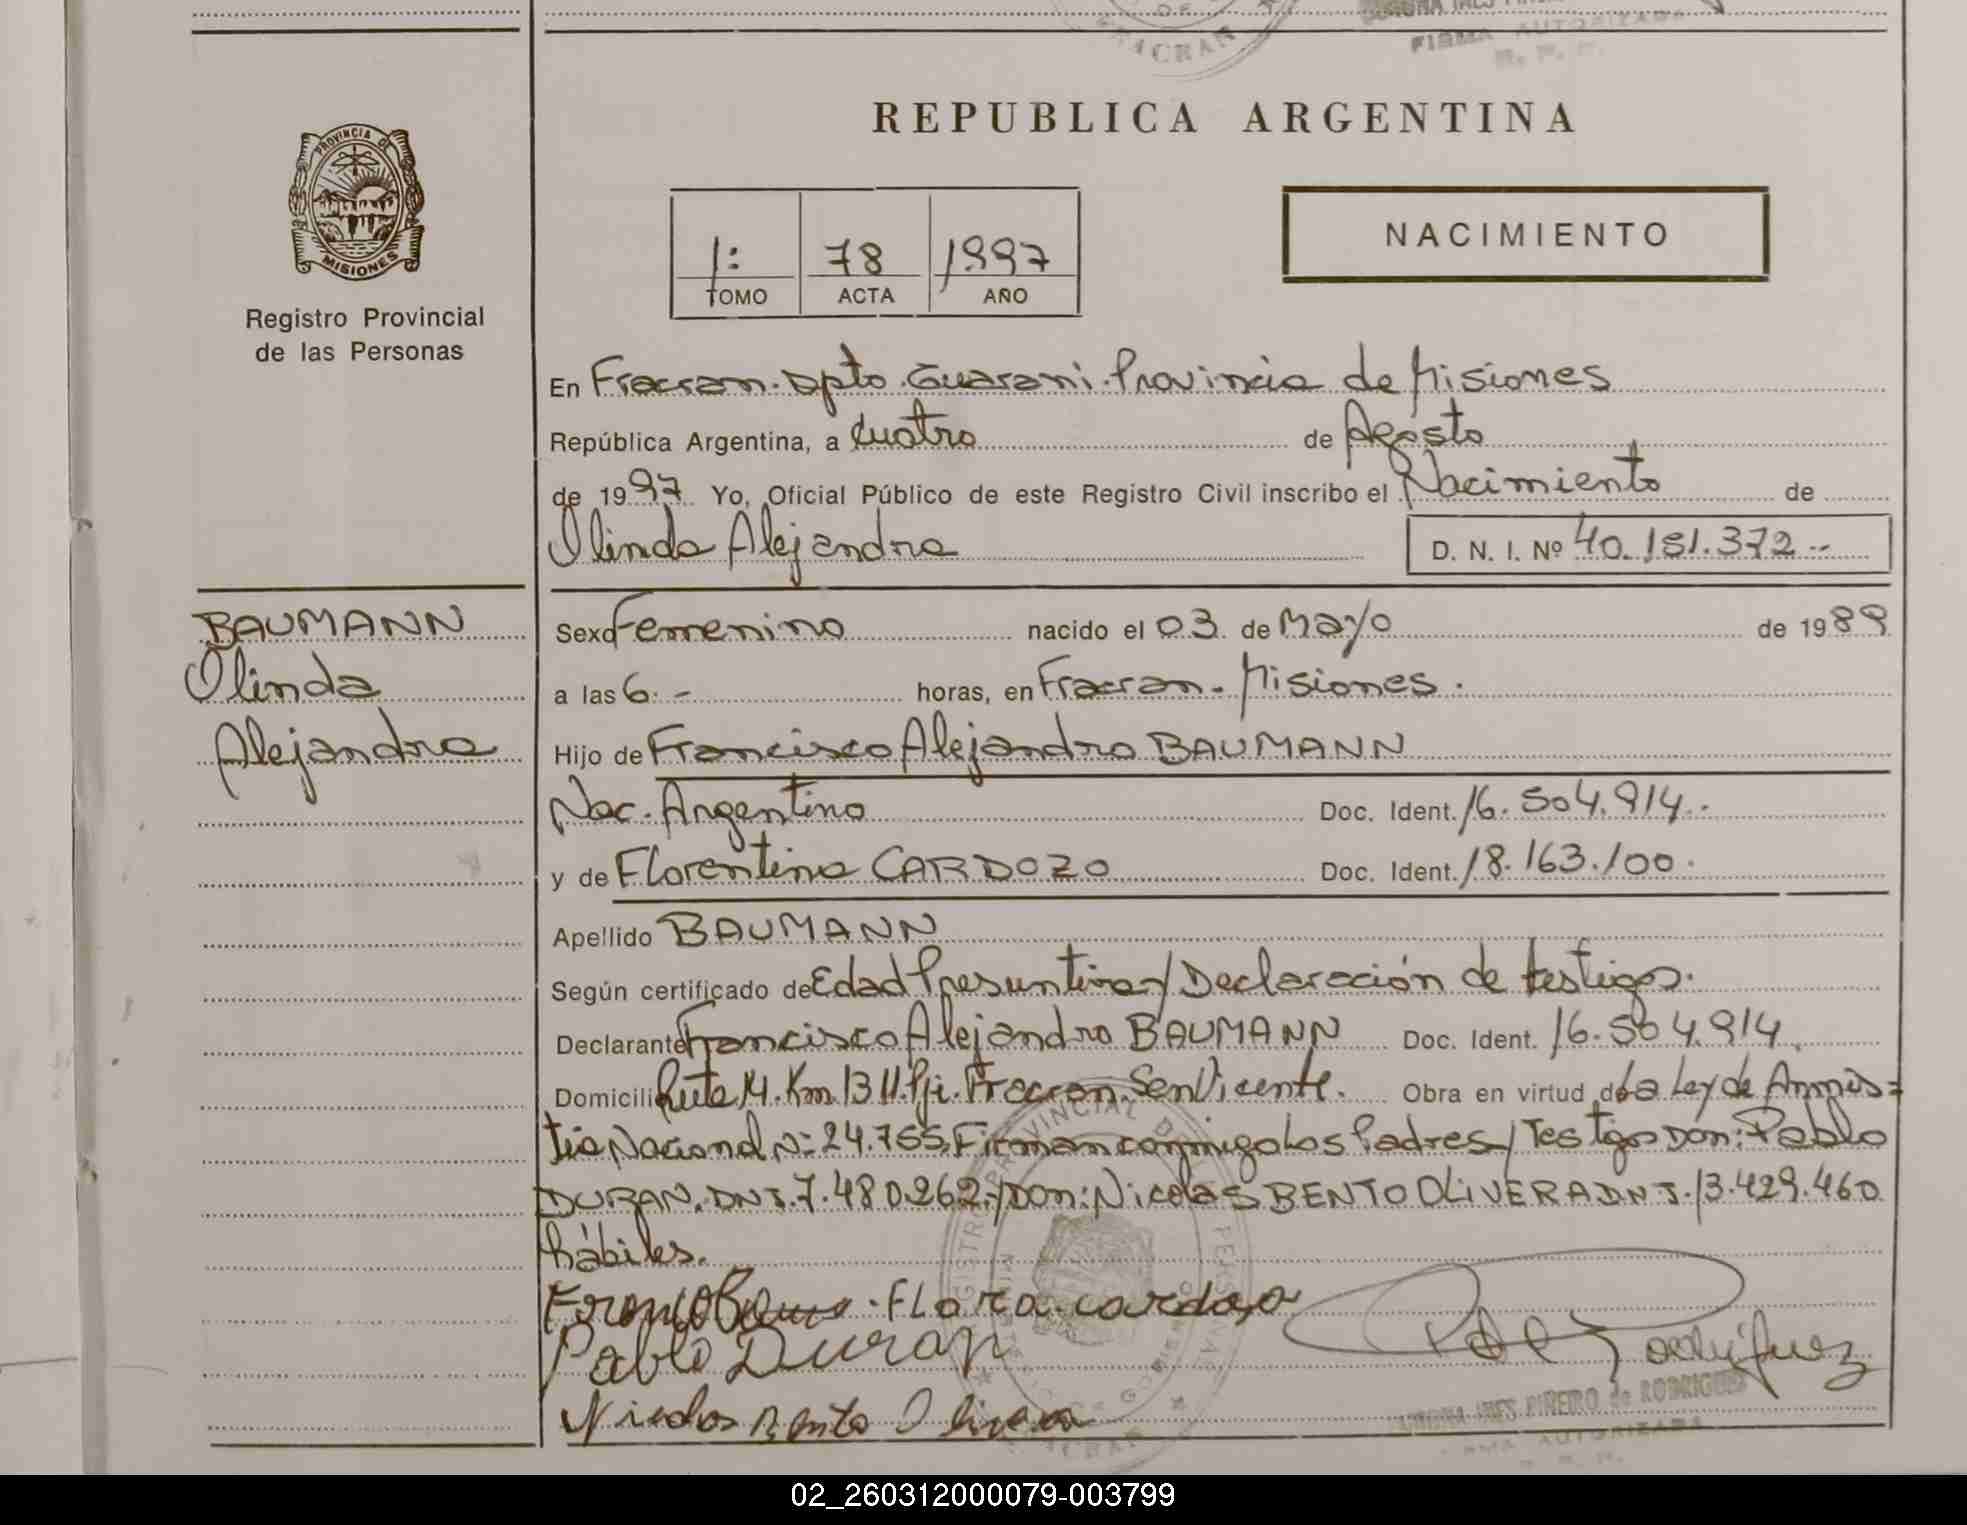 FRACRAN
FIRMA AUTORIZADA
R. P. P.
REPUBLICA ARGENTINA
PROVINCIA DE
MISIONES
Registro Provincial
de las Personas
1: 78 1997
TOMO ACTA AÑO
NACIMIENTO
En Fracran. Dpto. Guarani. Provincia de Misiones
República Argentina, a Cuatro de Agosto
de 1997 Yo, Oficial Público de este Registro Civil inscribo el Nacimiento de
Olinda Alejandra D. N. I. Nº 40.181.372--
BAUMANN
Olinda
Alejandra
Sexo Femenino nacido el 03 de Mayo de 1989
a las 6. - horas, en Fracran. Misiones.
Hijo de Francisco Alejandro BAUMANN
Nac. Argentino Doc. Ident. 16.504.914.-
y de Florentina CARDOZO Doc. Ident. 18.163.100.
Apellido BAUMANN
Según certificado de Edad Presuntiva y Declaración de testigos.
Declarante Francisco Alejandro BAUMANN Doc. Ident. 16.504.914.
Domicilio Ruta 14. Km. 1311. Pje. Fracran. San Vicente. Obra en virtud de La Ley de Amnis=
tia Nacional N: 24.755, Firman conmigo Los Padres y Testigos Don: Pablo
DURAN. DNI. 7.480.262. y Don: Nicolas BENTO OLIVERA DNI. 13.429.460
hábiles.
Flora cardozo
Pablo Duran
Nicolas Bento Olivera
Rodriguez
INES PIÑEIRO de RODRIGUEZ
FIRMA AUTORIZADA
REGISTRO PROVINCIAL DE LAS PERSONAS
FRACRAN
02_260312000079-003799